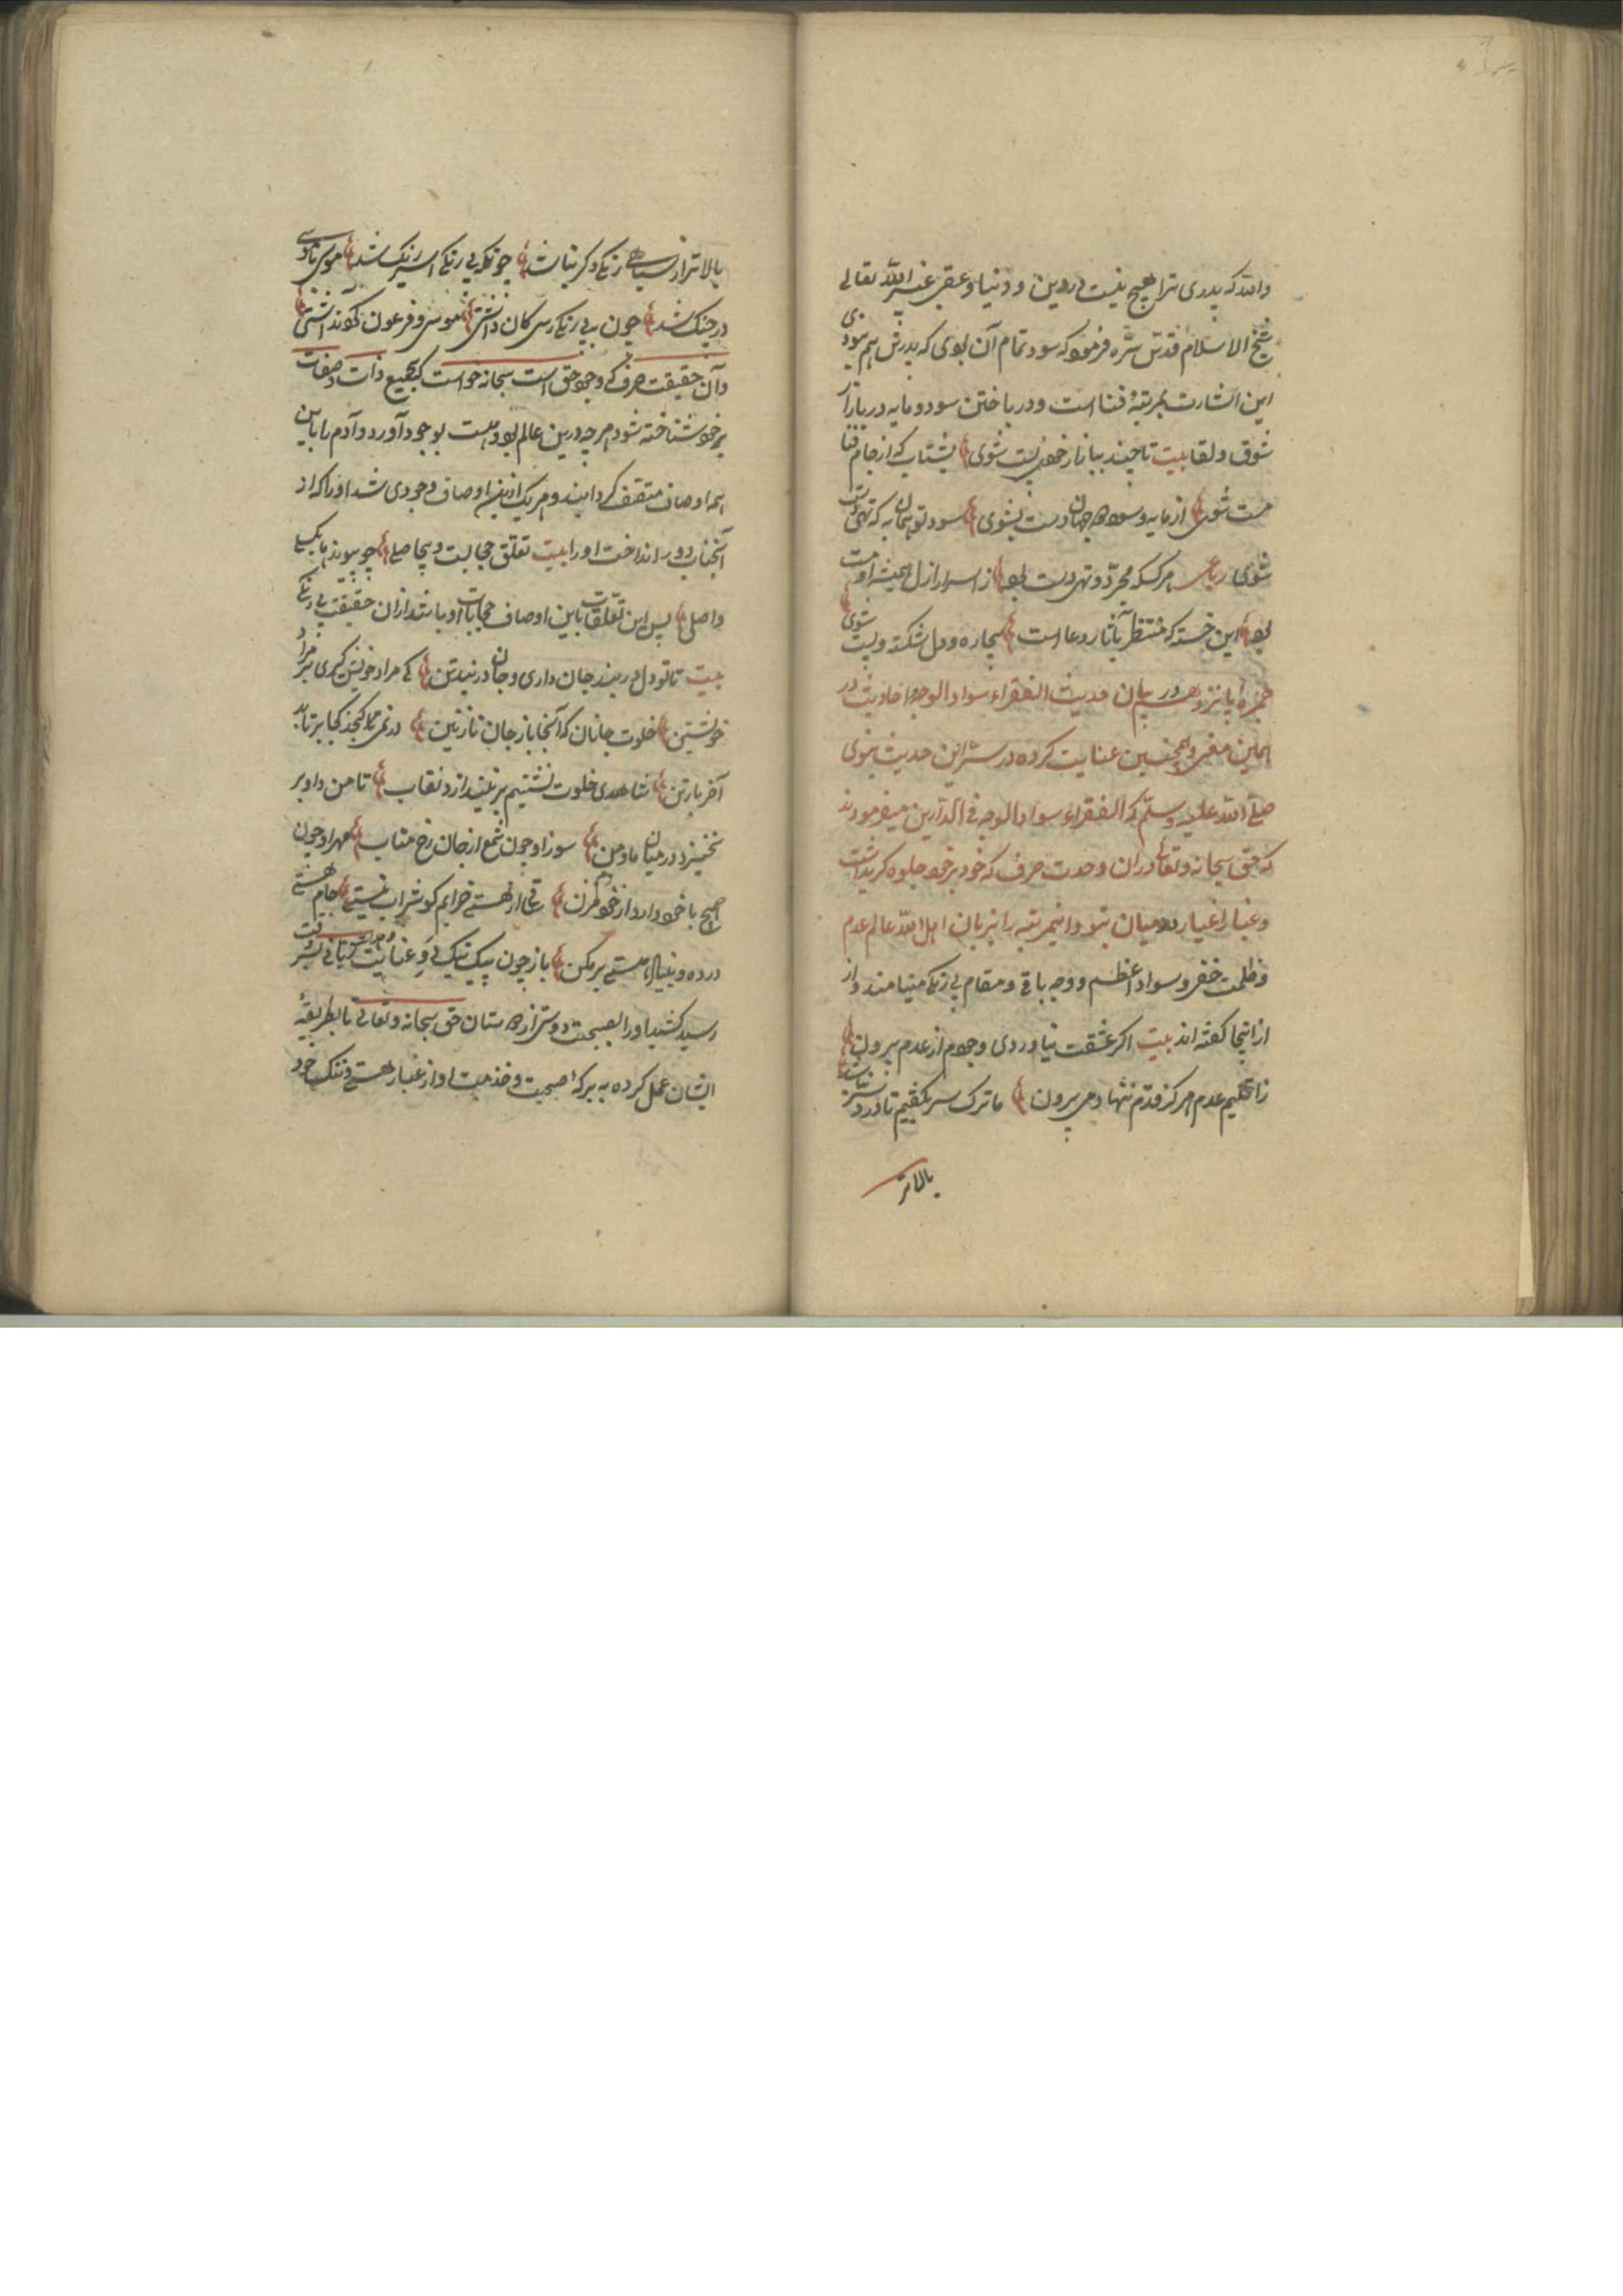 والله که پدری ترا هیچ نیست در دین و دنیا و عقبی غیر الله تعالی
شیخ الاسلام قدس سره فرمود که سود تمام آن بودی که پدرش هم نبودی
این اشارت بمرتبهٔ فنا است و در باختن سود و مایه در بازار
شوق و لقا بیت تا چند بناز از خود پست شوی بشتاب که از جام فنا
مست شوی از مایه و سود دو جهان دست بشوی سود تو همان به که تهی دست
شوی رباعی هرکس که مجرد و تهی دست بود از اسرار ازل همیشه او مست
بود این خسته که منتظر بآثار دعا است بیچاره و دل شکسته و پست شوی
خمرهٔ پانزدهم در بیان حدیث الفقراء سواد الوجه و احادیث در
همین معنی و همچنین عنایت کرده در سر این حدیث نبوی
صلی الله علیه وسلم که الفقراء سواد الوجه فی الدارین میفرمودند
که حق سبحانه و تعالی در آن وحدت صرف که خود بر خود جلوه کری داشت
و غبار اغیار در میان نبود و اینمرتبه را بزبان اهل الله عالم عدم
و ظلمت خفی و سواد اعظم و وجه باقی و مقام بی رنکی مینامند و از
از اینجا کفته اند بیت اکر عشقت نیاوردی وجودم از عدم بیرون
ز اقلیم عدم هرکز قدم ننهادمی بیرون ما ترک سر بکفتیم تا دردسر نباشد
بالاتر
بالاتر از سیاهی رنکی دکر نباشد چونکه بی رنکی اسیر رنک شد موسی با موسی
در جنک شد چون به بی رنکی رسی کان داشتی موسی و فرعون کوند آشتی
و آن حقیقت صرف که وجود حق است سبحانه خواست که بجمیع ذات و صفات
بر خود شناخته شود هر چه درین عالم بود و هست بوجود آورد و آدم را باین
همه اوصاف متصف کردانید و هر یک ازین اوصاف وجودی شد او را که از
آنجناب دور انداخت او را بیت تعلق حجابست و بیحاصلی چو پیوندها بکسلی
واصلی پس این تعلقات باین اوصاف حجابات او باشد از آن حقیقت بی رنکی
بیت تا تو دل در بند جان داری و جان در بند تن کی مراد خویش کیری بر مراد
خویشتن خلوت جانان که آنجا بار جان نازنین در نمی کنجد کجا برتابد
آخر بار تن شاهدی خلوت نشینم بر نیندازد نقاب تا من داو بر
نخیزد در میان ما و من سوز او چون شمع از جان رخ متاب مهر او چون
صبح با خود دار و از خود دم مزن ساقی از هستی خرابم کو شراب نیستی جام هستی
درده و بنیاد هستی برکن باز چون پیک نیک پی عنایت و هدایت ربانی بسر وقت
رسید کشید او را بصحبت دوستی از دوستان حق سبحانه و تعالی تا بطریقهٔ
ایشان عمل کرده به برکهٔ صحبت و خدمت او از غبار هستی و ننک خود